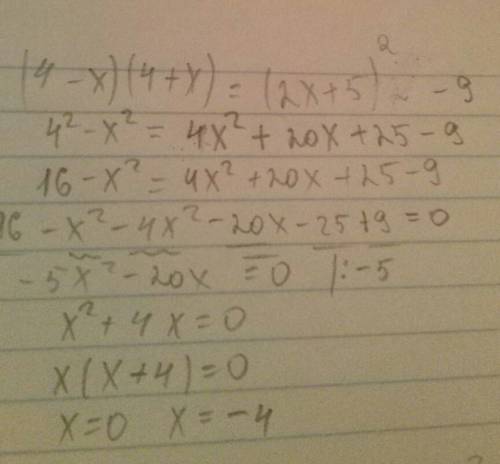 (4 - x)(4 + x) = (2x + 5)² - 9
4² - x² = 4x² + 20x + 25 - 9
16 - x² = 4x² + 20x + 25 - 9
16 - x² - 4x² - 20x - 25 + 9 = 0
-5x² - 20x = 0 |: -5
x² + 4x = 0
x(x + 4) = 0
x = 0 x = -4